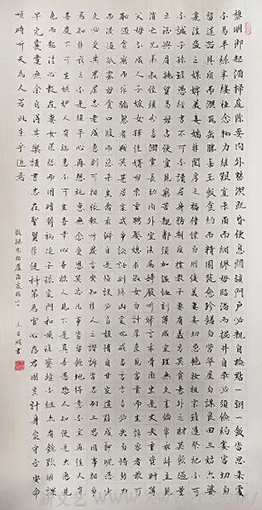 黎明即起洒掃庭除要內外整潔既昏便息關鎖門戶必親自檢點一粥一飯當思來處
不易半絲半縷恒念物力維艱宜未雨而綢繆毋臨渴而掘井自奉必須儉約宴客切勿
留連器具質而潔瓦缶勝金玉飲食約而精園蔬愈珍饈勿營華屋勿謀良田三姑六婆
實淫盜之媒婢美妾嬌非閨房之福童僕勿用俊美妻妾切忌艷妝祖宗雖遠祭祀不可
不誠子孫雖愚經書不可不讀居身務期質樸教子要有義方莫貪意外之財莫飲過量
之酒與肩挑貿易毋佔便宜見窮苦親鄰須加溫恤刻薄成家理無久享倫常乖舛立見
消亡兄弟叔侄須分多潤寡長幼內外宜法肅辭嚴聽婦言乖骨肉豈是丈夫重資財薄
父母不成人子嫁女擇佳婿毋索重聘娶媳求淑女勿計厚奩見富貴而生諂容者最可
恥遇貧窮而作驕態者賤莫甚居家戒爭訟訟則終凶處世戒多言言多必失勿恃勢力
而凌逼孤寡毋貪口腹而恣殺生禽乖僻自是悔誤必多頹惰自甘家道難成狎昵惡少
久必受其累屈志老成急則可相依輕聽發言安知非人之譖訴當忍耐三思因事相爭
焉知非我之不是須平心暗想施惠無念受恩莫忘凡事當留餘地得意不宜再往人有
喜慶不可生妒嫉心人有禍患不可生喜幸心善欲人見不是真善惡恐人知便是大惡見
色而起淫心報在妻女匿怨而用暗箭禍延子孫家門和順雖饔飧不繼亦有餘歡國課
早完即囊橐無餘自得至樂讀書志在聖賢非徒科第為官心存君國豈計身家守分安命
順時聽天為人若此庶乎近焉
敬錄朱柏廬治家格言